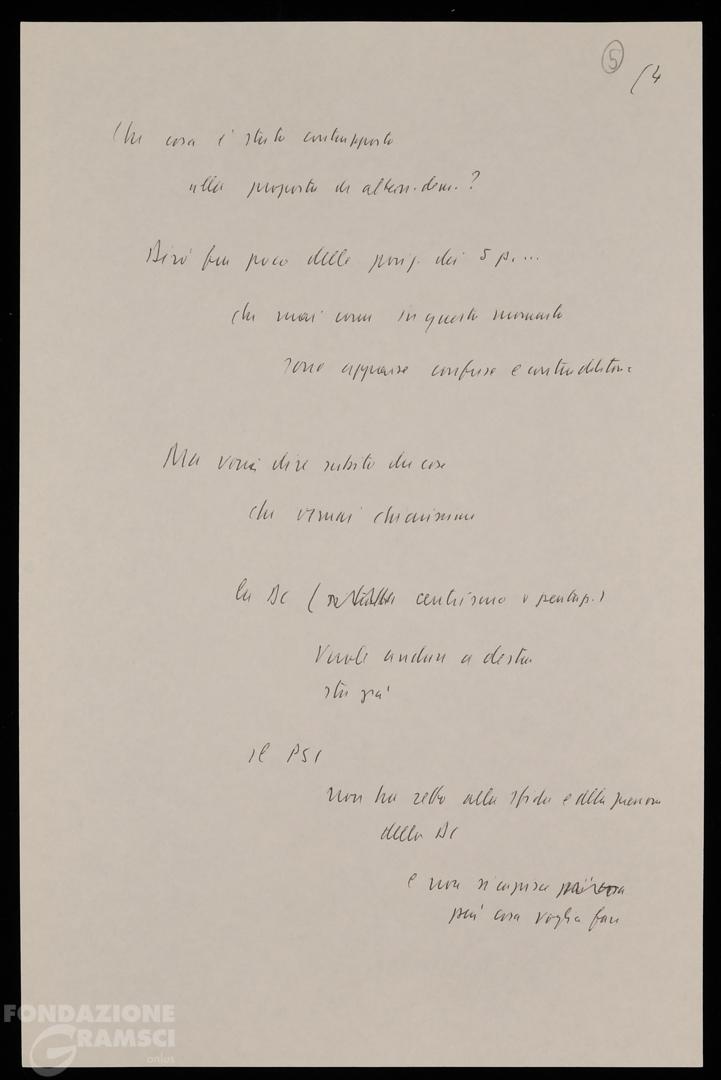 5
/4
Che cosa è stato contrapposto
alla proposta di altern. dem.?
Dirò fra poco delle posiz. dei 5 p. ...
che mai come in questo momento
sono apparse confuse e contraddittorie
Ma vorrei dire subito due cose
che vanno chiarissime
la DC ( centrismo o pentap.)
Vuole andare a destra
sta già
Il PSI
non ha retto alla sfida e alla pressione
della DC
e non si capisce
più cosa voglia fare
FONDAZIONE
GRAMSCI
onlus